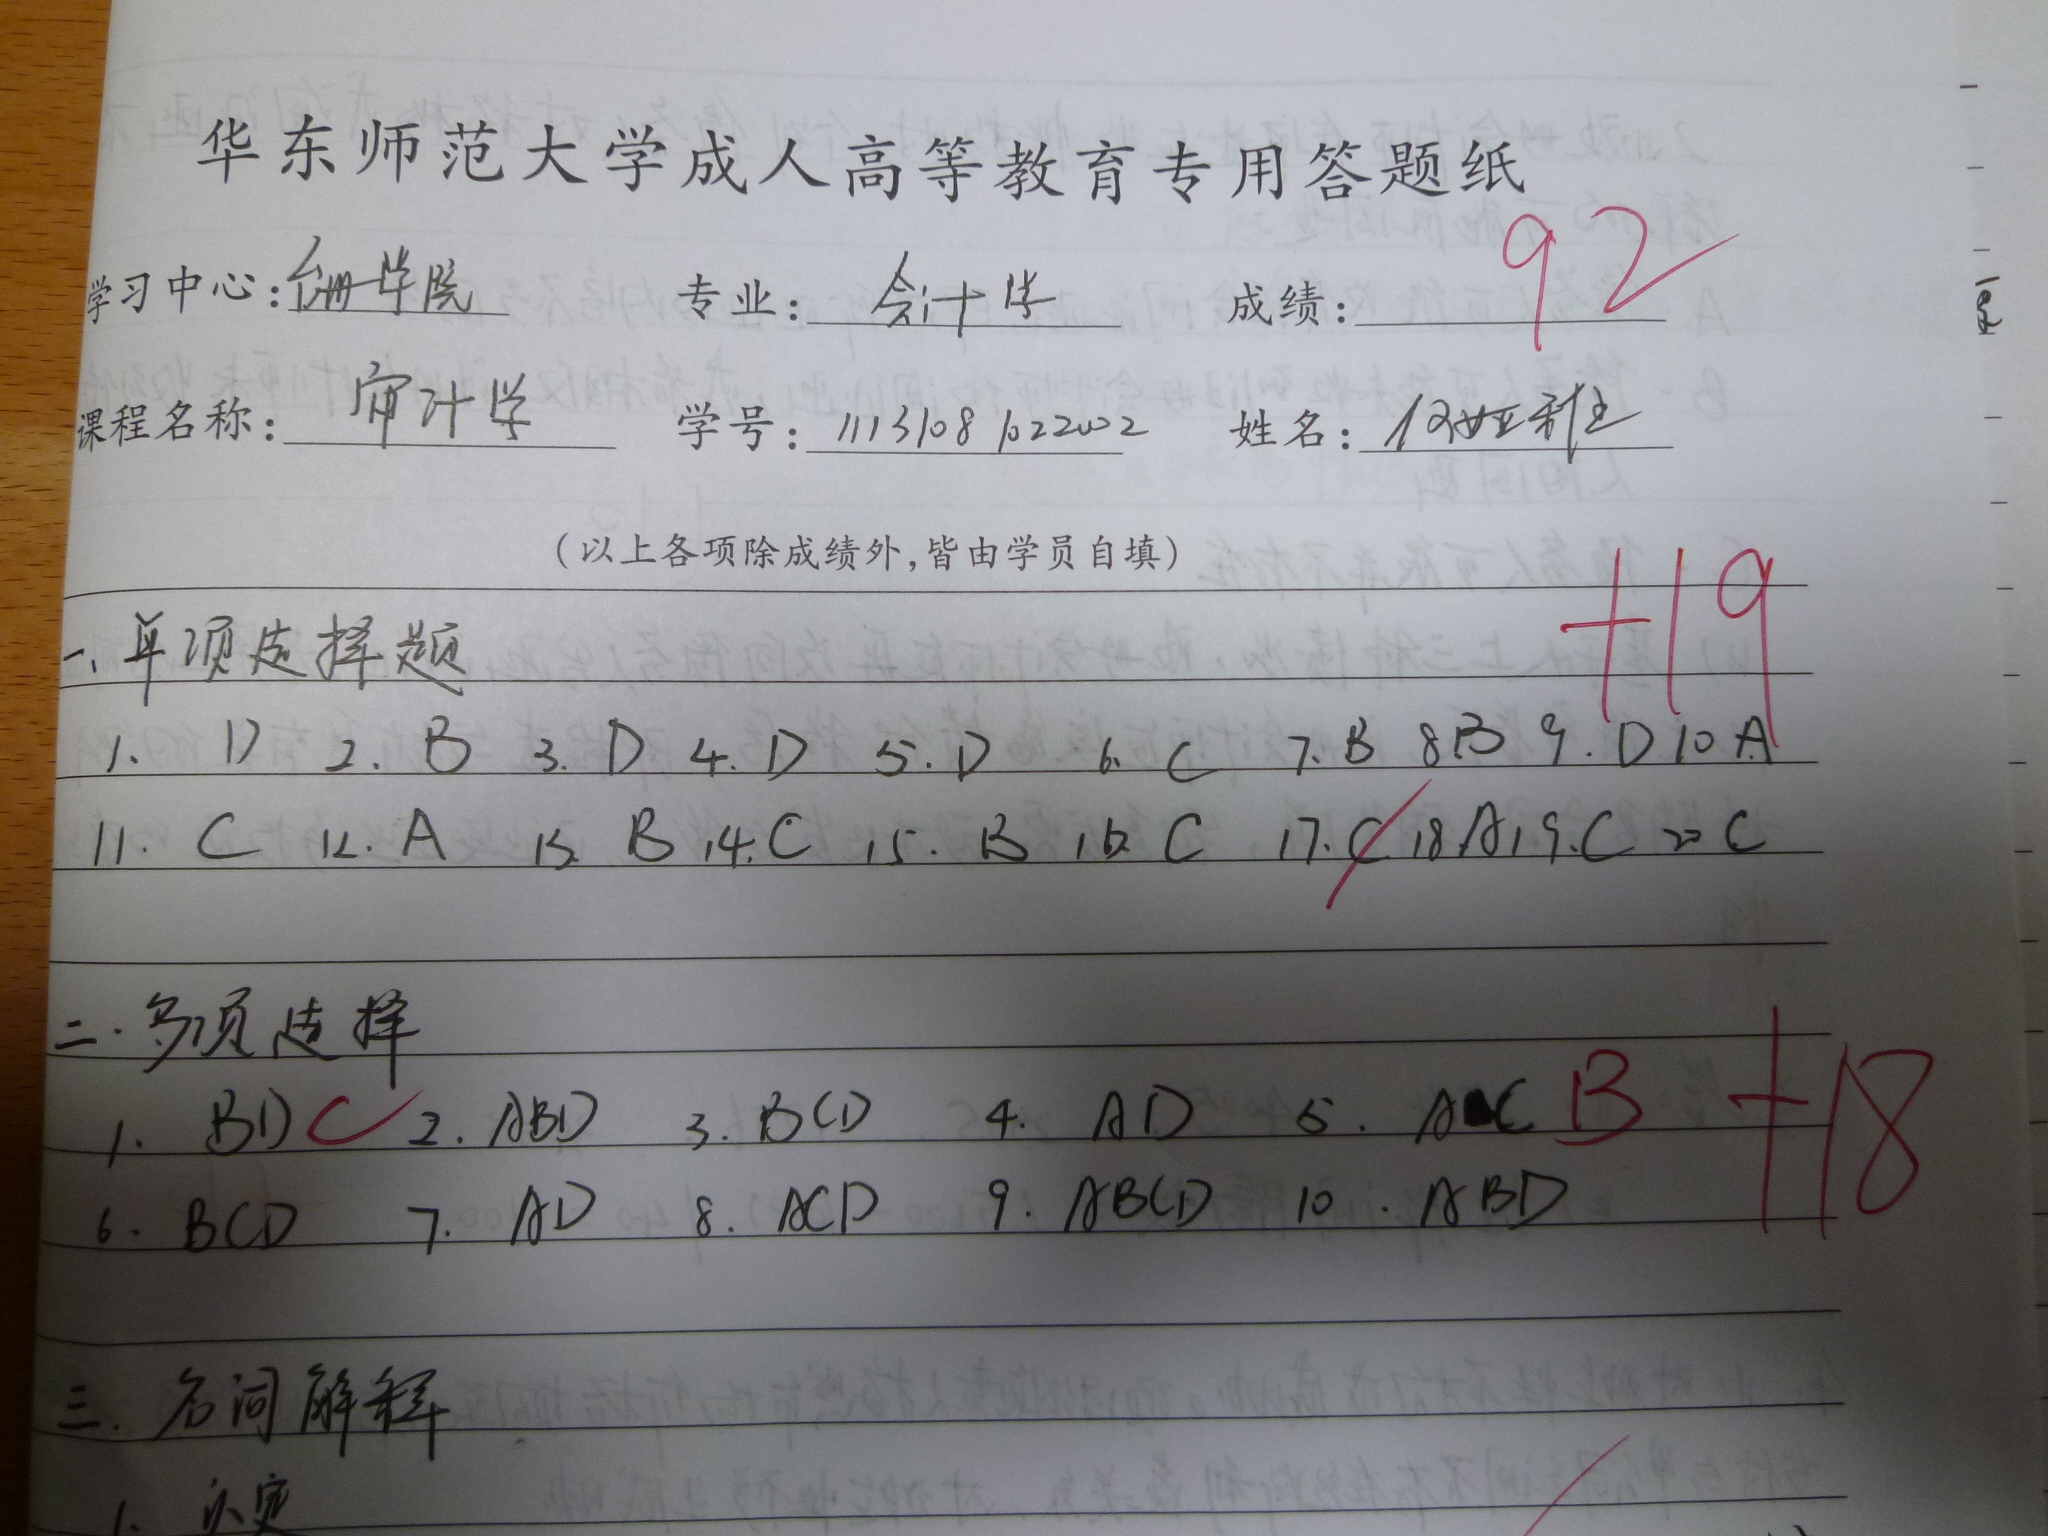 华东师范大学成人高等教育专用答题纸
学习中心: 台州学院 专业: 会计学 成绩: 92
课程名称: 审计学 学号: 1113108 1022002 姓名:
(以上各项除成绩外,皆由学员自填)
一、单项选择题 +19
1. D 2. B 3. D 4. D 5. D 6. C 7. B 8. B 9. D 10 A
11. C 12. A 13. B 14. C 15. B 16. C 17. C 18. A 19. C 20 C
二. 多项选择
1. BD C 2. ABD 3. BCD 4. AD 5. A C B +18
6. BCD 7. AD 8. ACD 9. ABCD 10. ABD
三. 名词解释
1. 认定